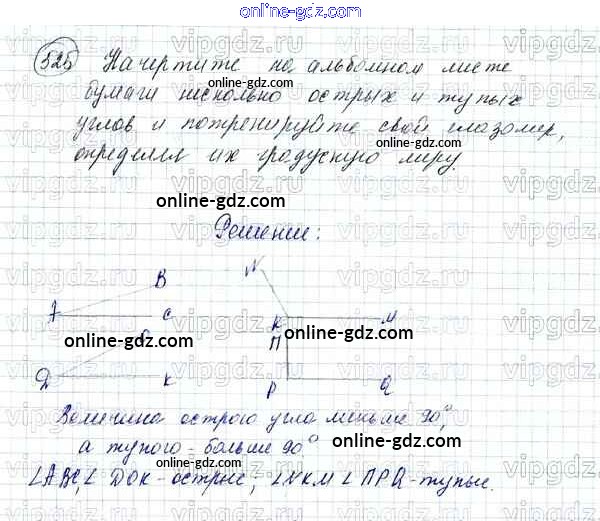 online-gdz.com
525 Начертите на альбомном листе
бумаги несколько острых и тупых
углов и потренируйте свой глазомер,
определяя их градусную меру.
online-gdz.com
Решение:
N
B
A C K M
online-gdz.com online-gdz.com
O П
D K P Q
Величина острого угла меньше 90°,
а тупого - больше 90°
online-gdz.com
∠ABC, ∠DOK - острые; ∠NKM ∠ПPQ - тупые.
online-gdz.com